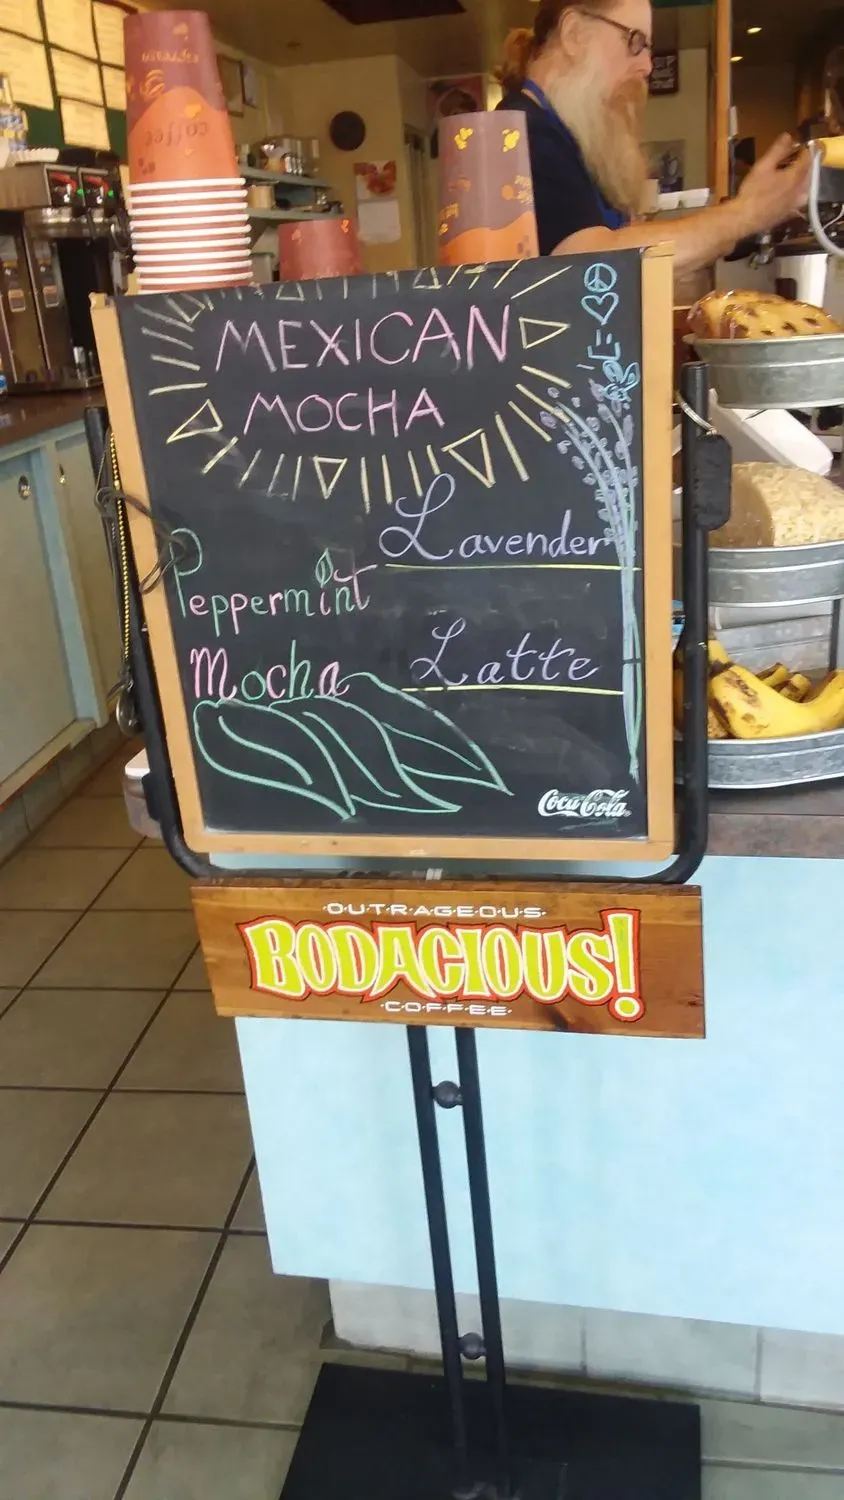 MEXICAN
MOCHA
Lavender
Latte
Peppermint
Mocha
Coca-Cola
OUTRAGEOUS
BODACIOUS!
COFFEE
coffee